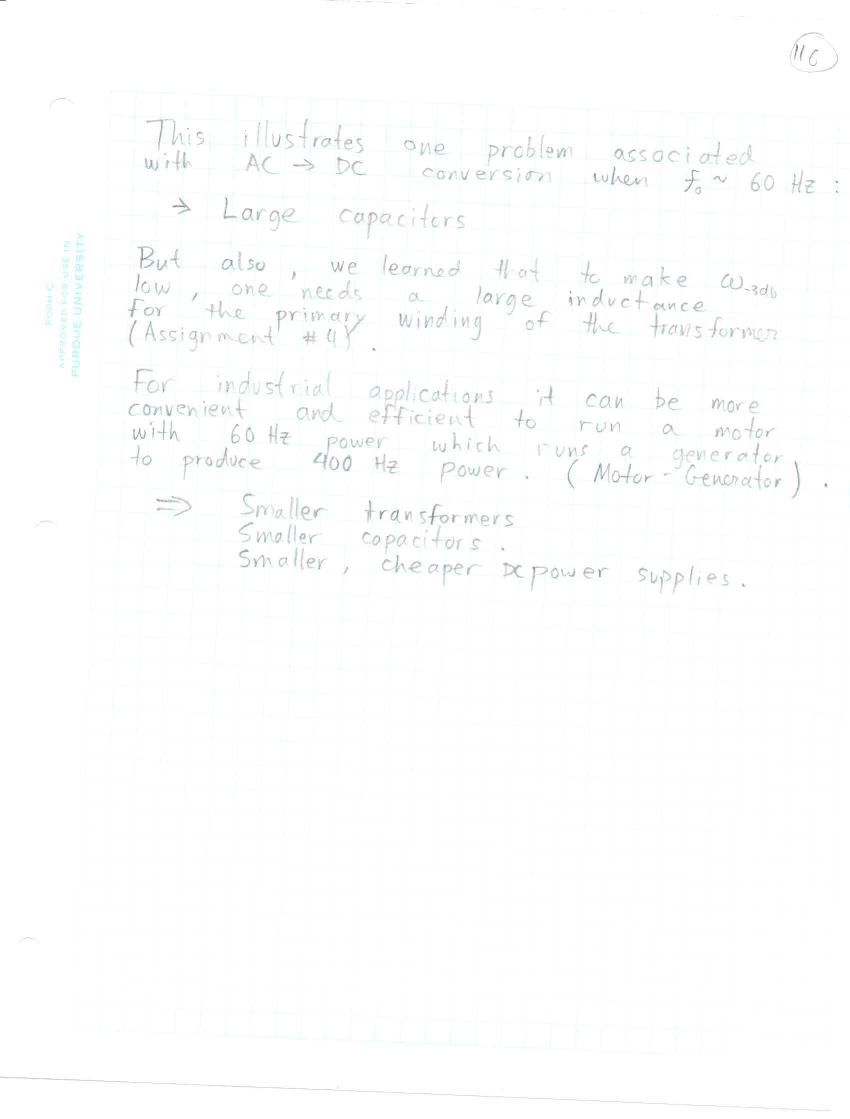 116
This illustrates one problem associated
with AC → DC conversion when f₀ ~ 60 Hz :
→ Large capacitors
But also , we learned that to make ω₋₃db
low , one needs a large inductance
for the primary winding of the transformer
(Assignment #4) .
For industrial applications it can be more
convenient and efficient to run a motor
with 60 Hz power which runs a generator
to produce 400 Hz power . (Motor - Generator) .
⇒ Smaller transformers
Smaller capacitors .
Smaller , cheaper DC power supplies .
FORM C
APPROVED FOR USE IN
PURDUE UNIVERSITY